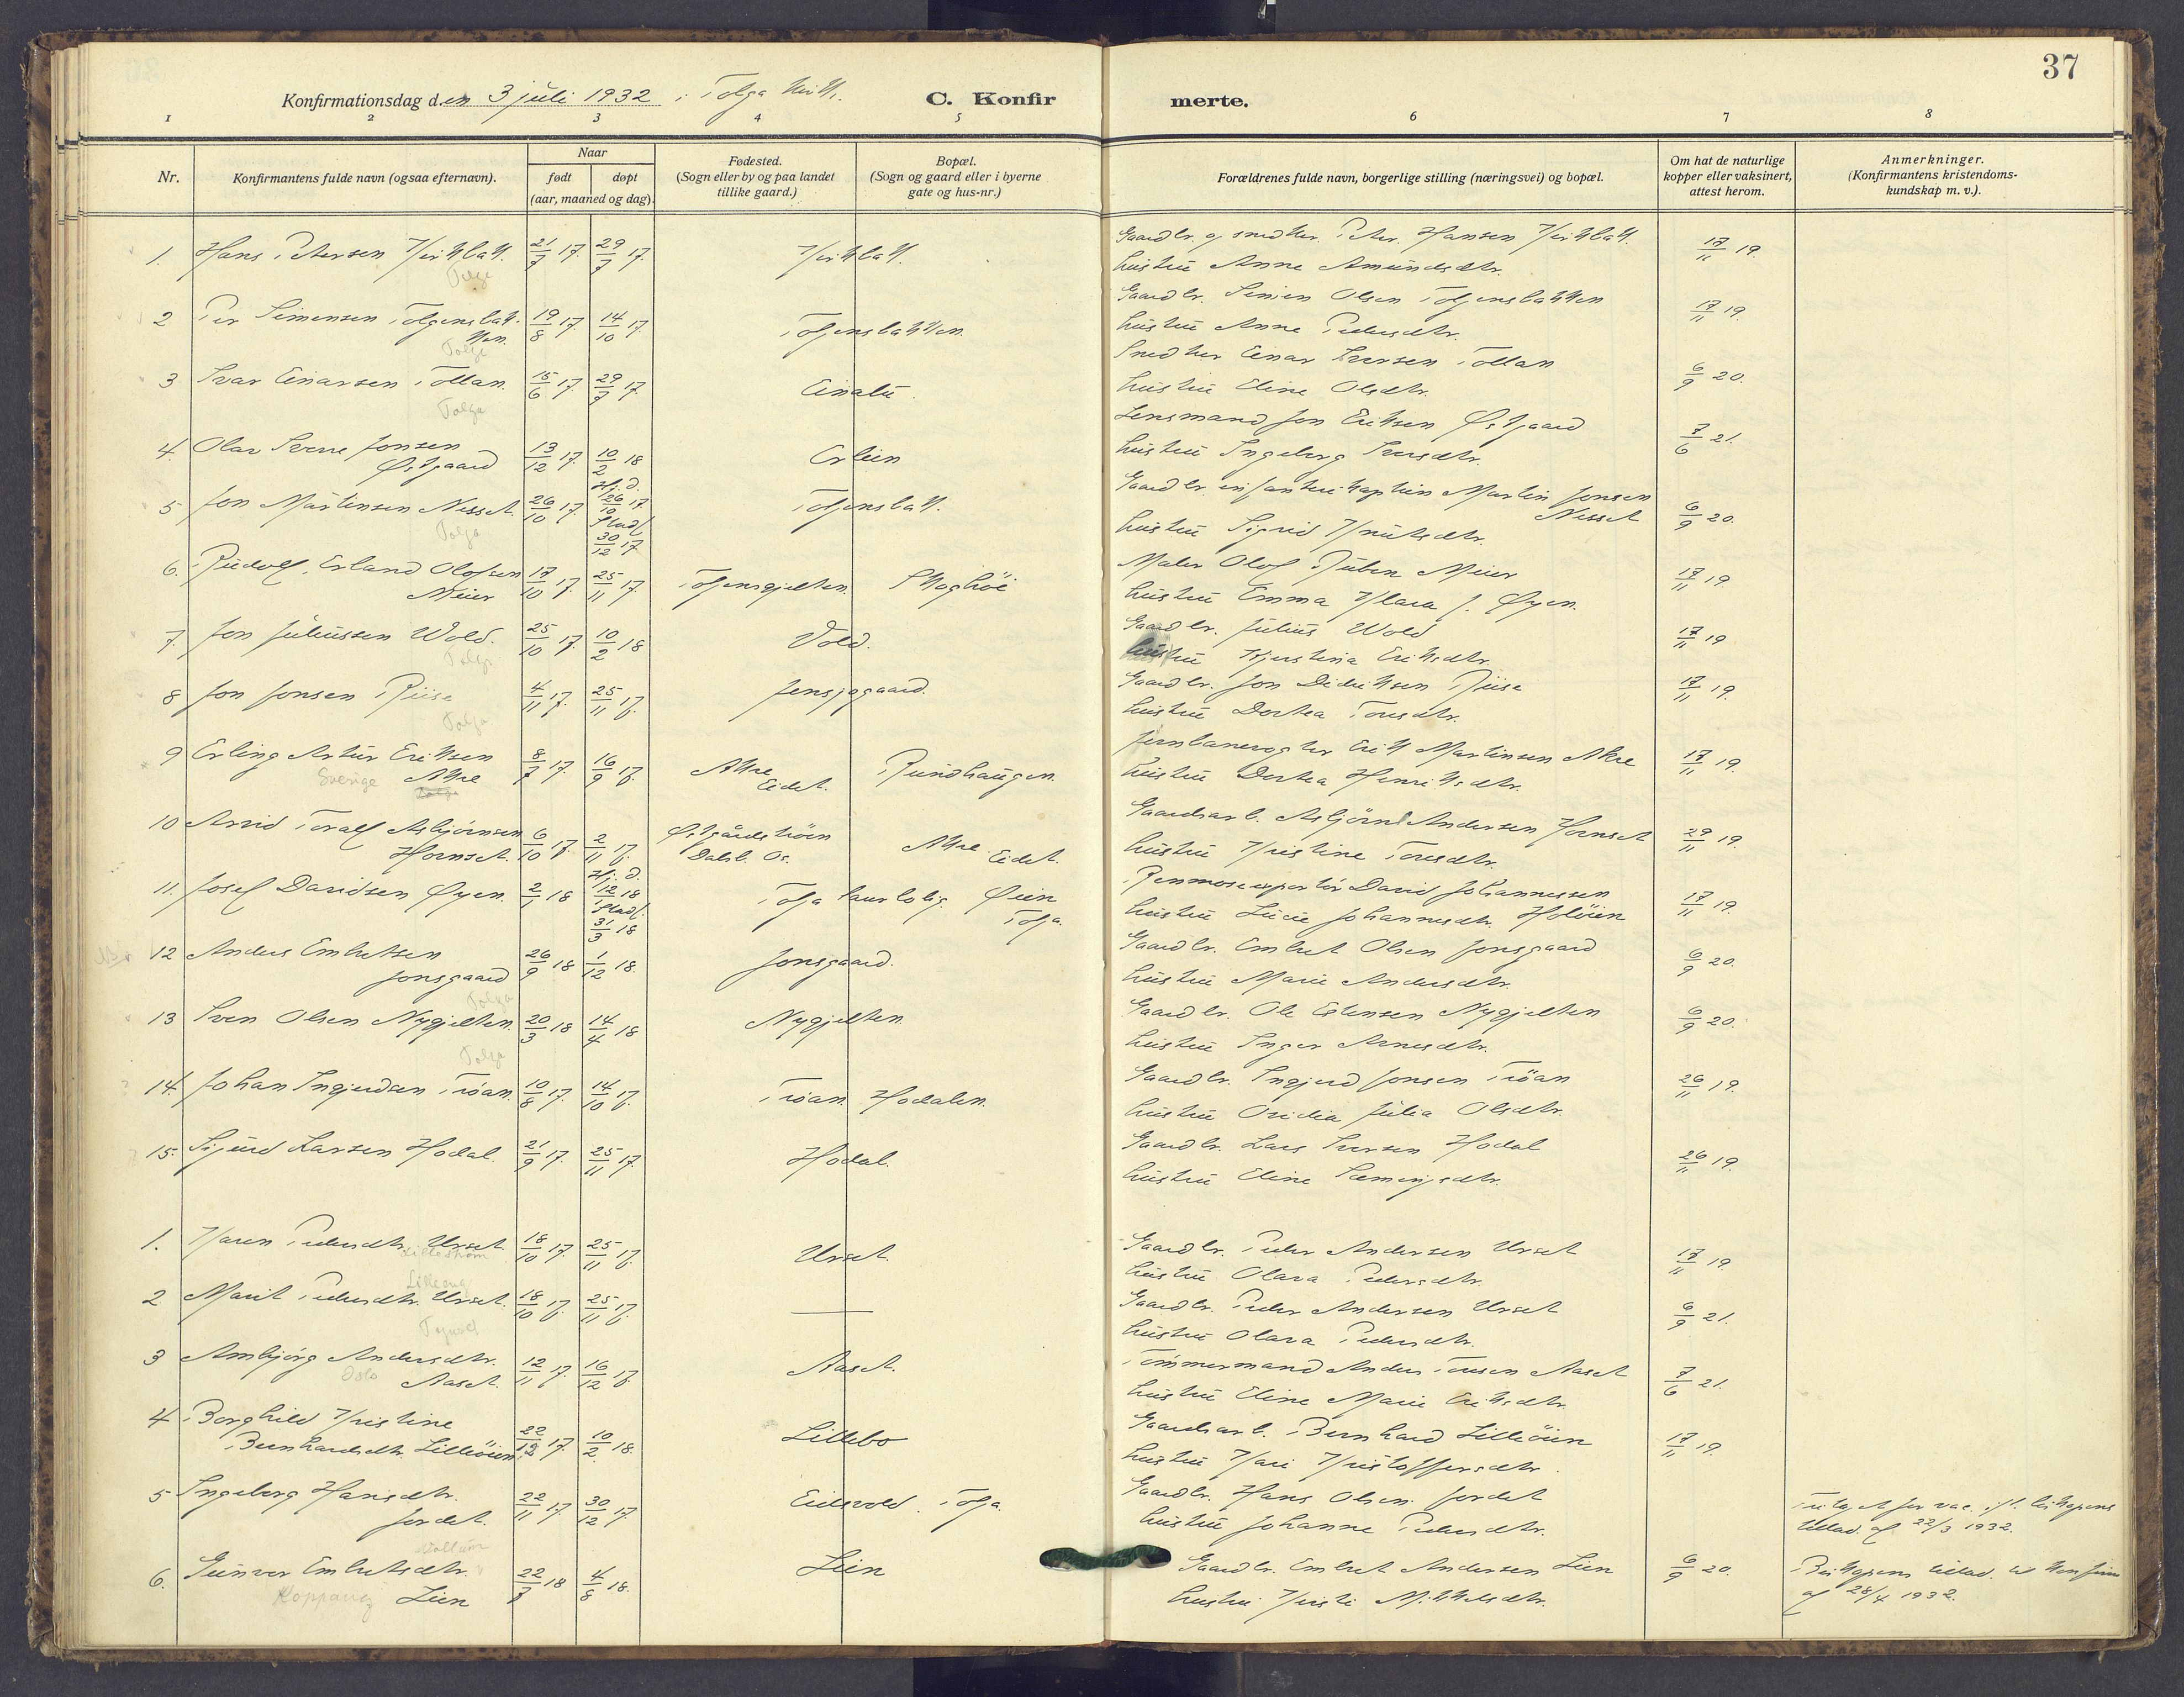 37
Konfirmationsdag den 3 juli 1932 i Tolga kirke.
C. Konfirmerte.
1 2 3 4 5 6 7 8
Nr.
Konfirmantens fulde navn (ogsaa efternavn).
Naar
født
døpt
(aar, maaned og dag).
Fødested.
(Sogn eller by og paa landet
tillike gaard.)
Bopæl.
(Sogn og gaard eller i byerne
gate og hus-nr.)
Forældrenes fulde navn, borgerlige stilling (næringsvei) og bopæl.
Om hat de naturlige
kopper eller vaksinert,
attest herom.
Anmerkninger.
(Konfirmantens kristendoms-
kundskap m. v.).
1. Hans Petersen Kirkbakk. 21/7 17. 29/7 17. Kirkbakk. Gaardbr. og snedker Peter Hansen Kirkbakk. 17/11 19.
Tolga
hustru Anne Amundsdtr.
2 Per Simensen Tolgensbakk- 19/8 17. 14/10 17. Tolgensbakken. Gaardbr. Simen Olsen Tolgensbakken 17/11 19.
ken.
Tolga
hustru Anne Pedersdtr.
3 Ivar Einarsen Tollan. 15/6 17. 29/7 17. Einabu. Snedker Einar Iversen Tollan 6/9 20.
Tolga
hustru Eline Olsdtr.
4. Olav Sverre Jonsen 13/12 17. 10/2 18 Erlien Lensmand Jon Eriksen Østgaard 7/6 21.
Østgaard
hustru Ingeborg Iversdtr.
5 Jon Martinsen Nesset. 26/10 17. Hj. d. 26/10 17. Stadf. 30/12 17. Tolgensbakk. Gaardbr. infanterikaptein Martin Jonsen 6/9 20.
Nesset
Tolga
hustru Sigrid Knutsdtr.
6. Rudolf Erland Olofsen 17/10 17. 25/11 17. Tolgensgjelten. Skoghöi Maler Olof Ruben Meier 17/11 19
Meier
hustru Emma Klara f. Øyen.
7. Jon Juliussen Wold. 25/10 17. 10/2 18 Vold. Gaardbr. Julius Wold 17/11 19
Tolga
hustru Kjerstina Eriksdtr.
8 Jon Jonsen Riise 4/11 17. 25/11 17. Jensjogaard. Gaardbr. Jon Didriksen Riise 17/11 19.
Tolga
hustru Dortea Toresdtr.
9 Erling Artur Eriksen 8/7 17. 16/9 17. Akre Eidet. Rundhaugen. Jernbanevogter Erik Martinsen Akre 17/11 19.
Sverige Akre
Tolga
hustru Dortea Henriksdtr.
10 Arvid Toralf Asbjörnsen 6/10 17. 2/11 17. Østgårdströen Dalsb. Os. Akre Eidet. Gaardsarb. Asbjörn Andersen Hornset 29/11 19.
Hornset.
hustru Kristine Toresdtr.
11. Josef Davidsen Øyen. 2/1 18 Hj. d. 12/1 18 Stadf. 31/3 18 Tolga Øien Tolga. David Johannessen 17/11 19.
hustru Lucie Johannesdtr. Holöien
12 Anders Embretsen 26/9 18 1/12 18. Jonsgaard. Gaardbr. Embret Olsen Jonsgaard 6/9 20.
Jonsgaard
hustru Marie Andersdtr.
Tolga
13 Sven Olsen Nygjelten. 20/3 18 14/4 18 Nygjelten Gaardbr. Ole Estensen Nygjelten 6/9 20.
Tolga
hustru Inger Arnesdtr.
14. Johan Ingjerdsen Tröan. 10/8 17. 14/10 17. Tröan. Hodalen. Gaardbr. Ingjerd Jonsen Tröan 26/11 19.
hustru Oridia Julia Olsdtr.
15. Sigurd Larsen Hodal. 21/9 17. 25/11 17. Hodal. Gaardbr. Lars Iversen Hodal 26/11 19.
hustru Eline Semingsdtr.
1. Karen Pedersdtr. Urset. 18/10 17. 25/11 17. Urset. Gaardbr. Peder Andersen Urset 17/11 19.
Lillestrøm
hustru Olava Pedersdtr.
2 Marit Pedersdtr. Urset. 18/10 17. 25/11 17. — Gaardbr. Peder Andersen Urset 6/9 21.
Tynset
hustru Olava Pedersdtr.
3 Ambjörg Andersdtr. 12/11 17. 16/12 17. Aaset. Tömmermand Anders Toresen Aaset 7/6 21.
Oslo Aaset.
hustru Eline Marie Eriksdtr.
4 Borghild Kristine 22/12 17. 10/2 18. Lillebo Gaardsarb. Bernhard Lilleöien 17/11 19.
Bernhardsdtr. Lilleöien.
hustru Kari Kristoffersdtr.
5 Ingeborg Hansdtr. 22/11 17. 30/12 17. Eidsvold. Tolga. Gaardbr. Hans Olsen Jordet
Jordet.
hustru Johanne Pedersdtr.
Fritag. for vac. ifl. biskopens
tillad. af 22/3 1932.
6. Gunvor Embretsdtr. 22/3 18 4/8 18. Lien Gaardbr. Embret Andersen Lien 6/9 20.
Koppang Lien
hustru Kirsti Mikkelsdtr.
Biskopens tillad. til konfirm
af 28/4 1932.